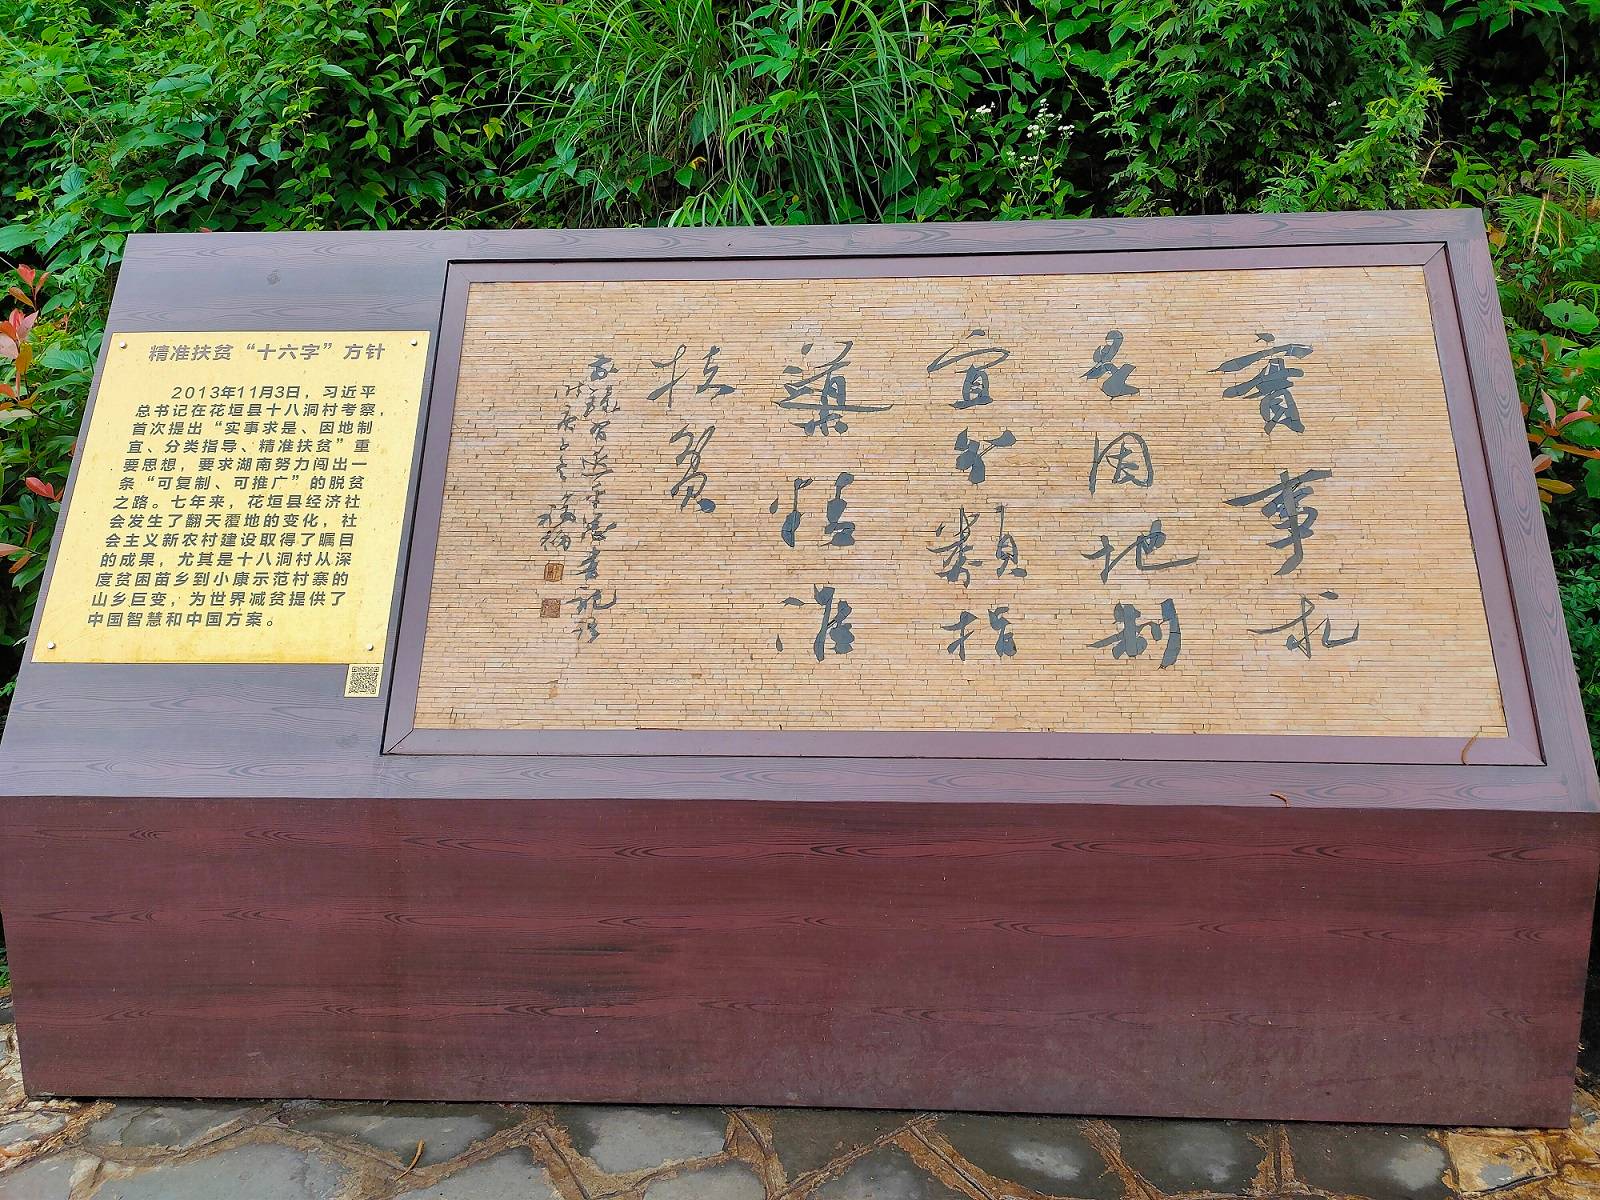 精准扶贫“十六字”方针
2013年11月3日，习近平
总书记在花垣县十八洞村考察，
首次提出“实事求是、因地制
宜、分类指导、精准扶贫”重
要思想，要求湖南努力闯出一
条“可复制、可推广”的脱贫
之路。七年来，花垣县经济社
会发生了翻天覆地的变化，社
会主义新农村建设取得了瞩目
的成果，尤其是十八洞村从深
度贫困苗乡到小康示范村寨的
山乡巨变，为世界减贫提供了
中国智慧和中国方案。
實事求
是因地制
宜分類指
導精准
扶贫
習近平總書記